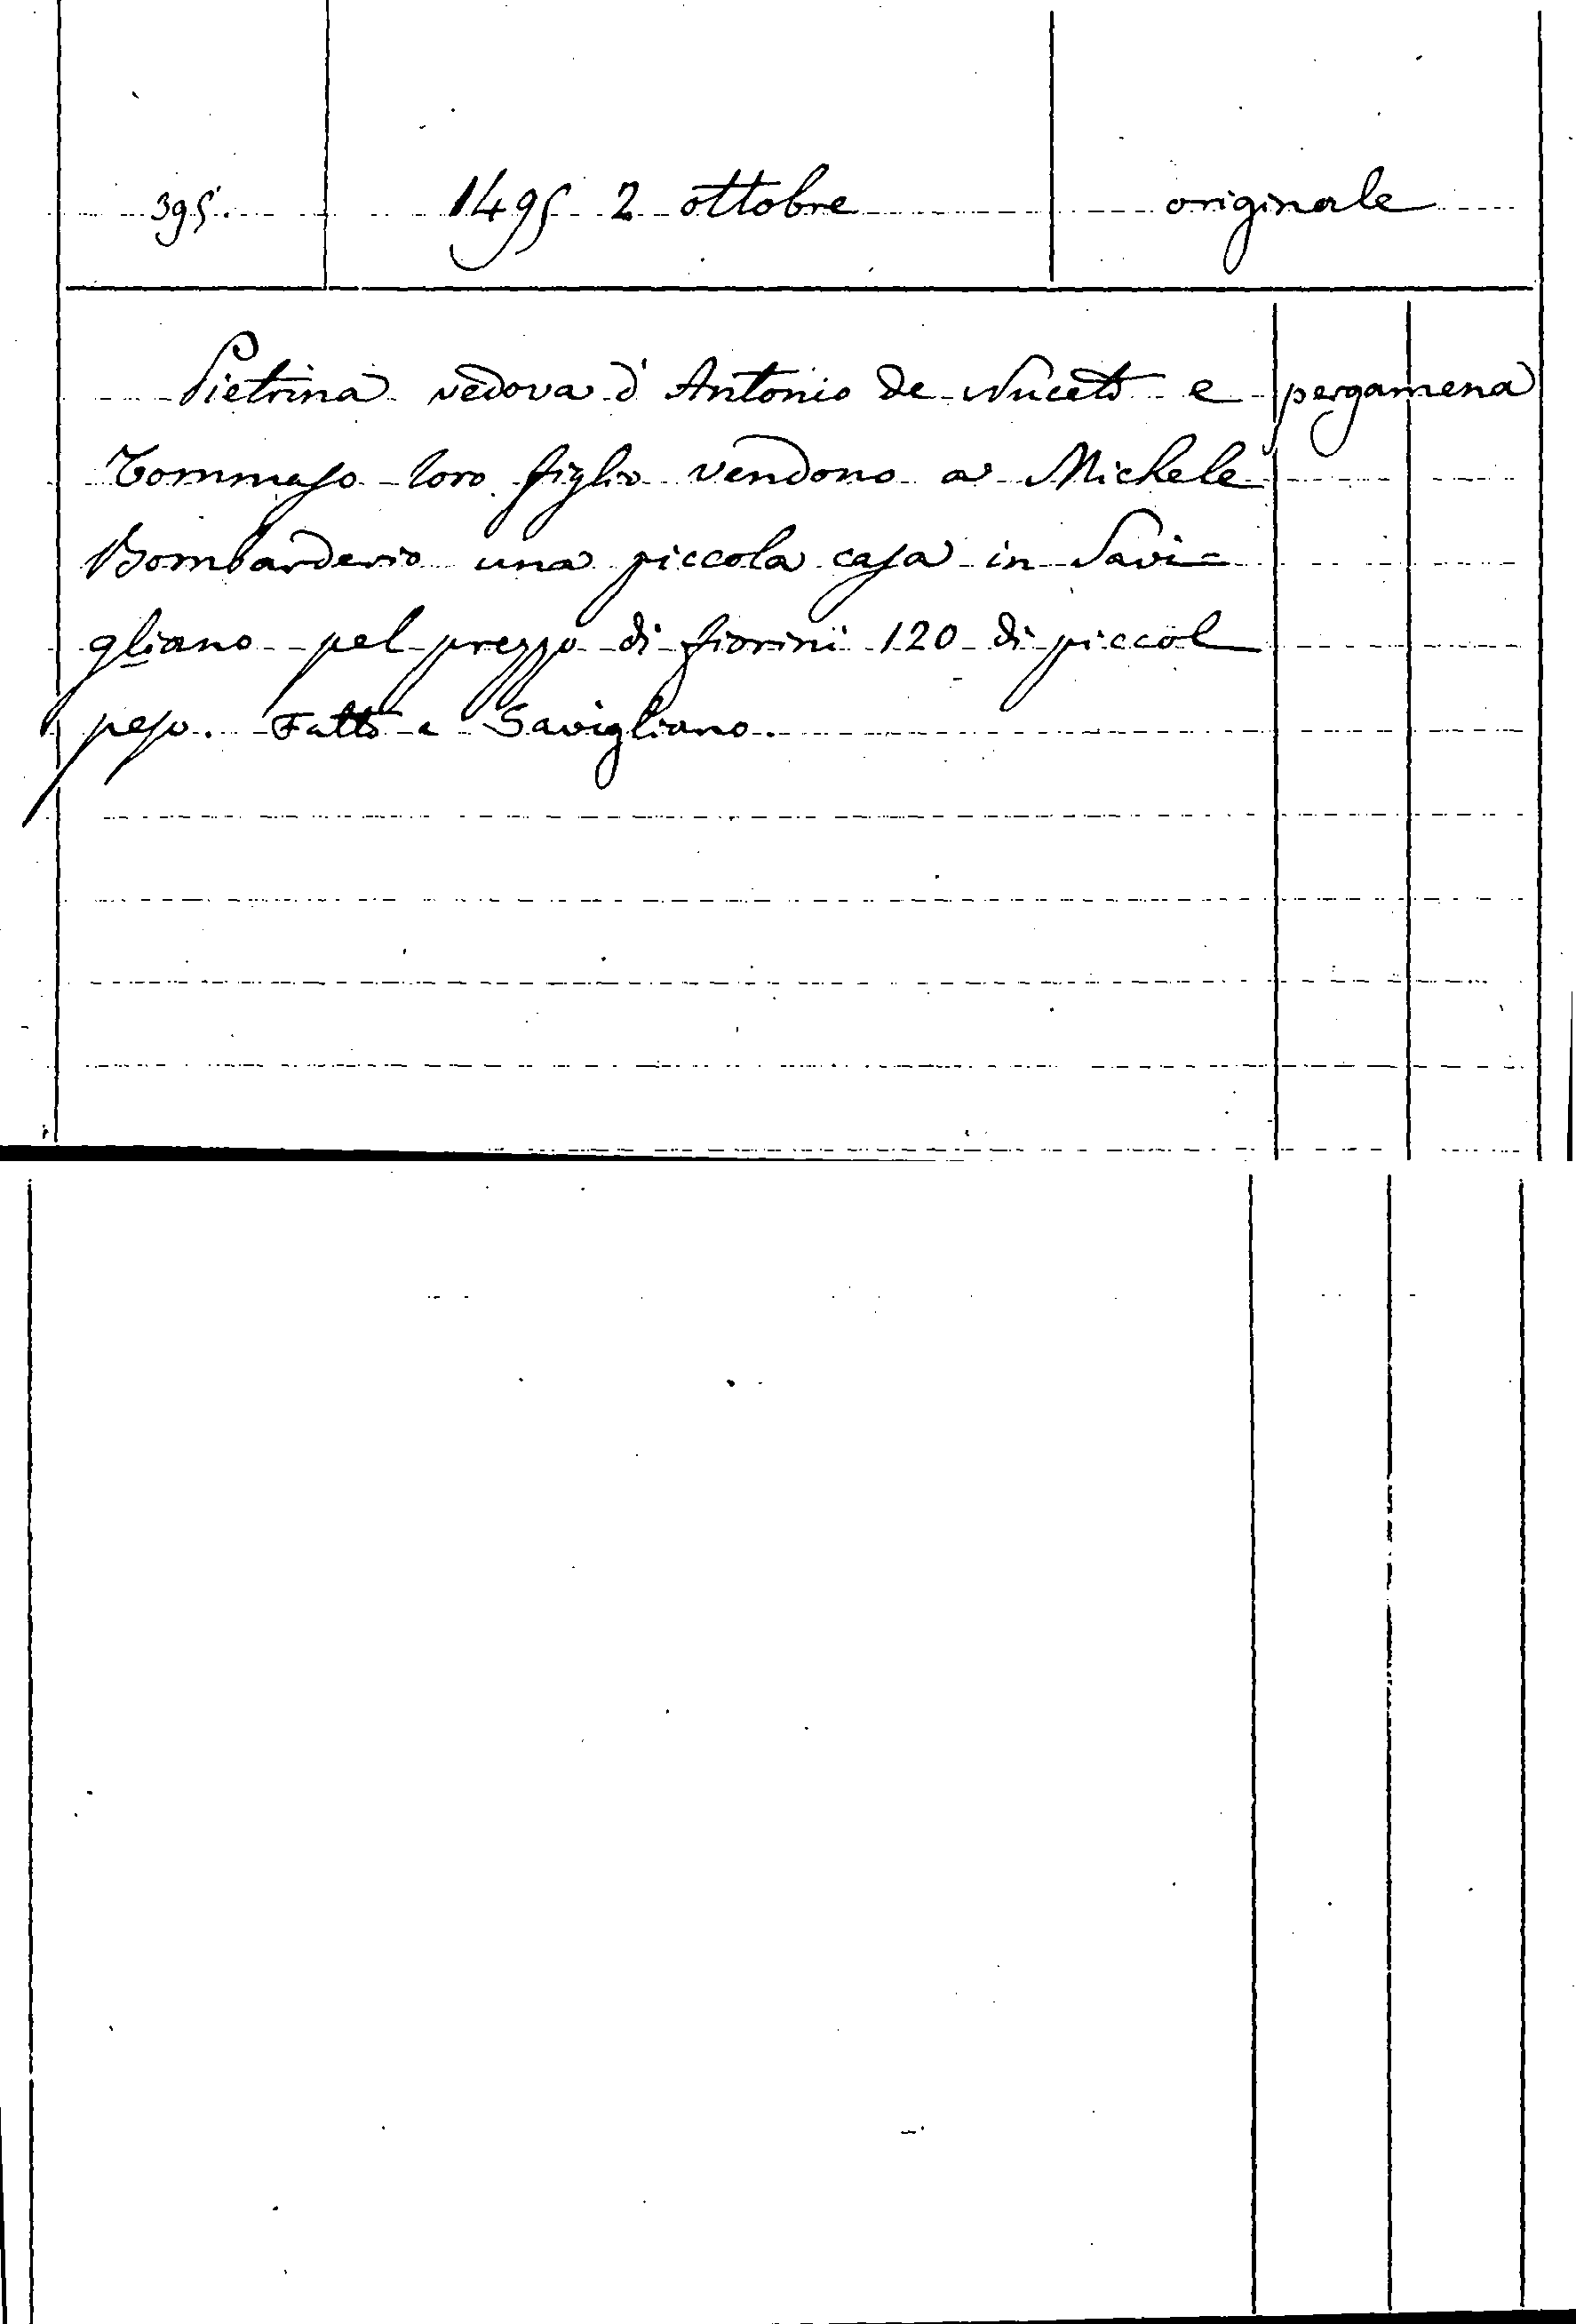 395. 1495 2 ottobre originale
Pietrina vedova d'Antonio de Nuceto e pergamena
Tommaso loro figlio vendono a Michele
Bombarderio una piccola casa in Savi=
gliano pel prezzo di fiorini 120 di piccol
peso. Fatto a Savigliano.